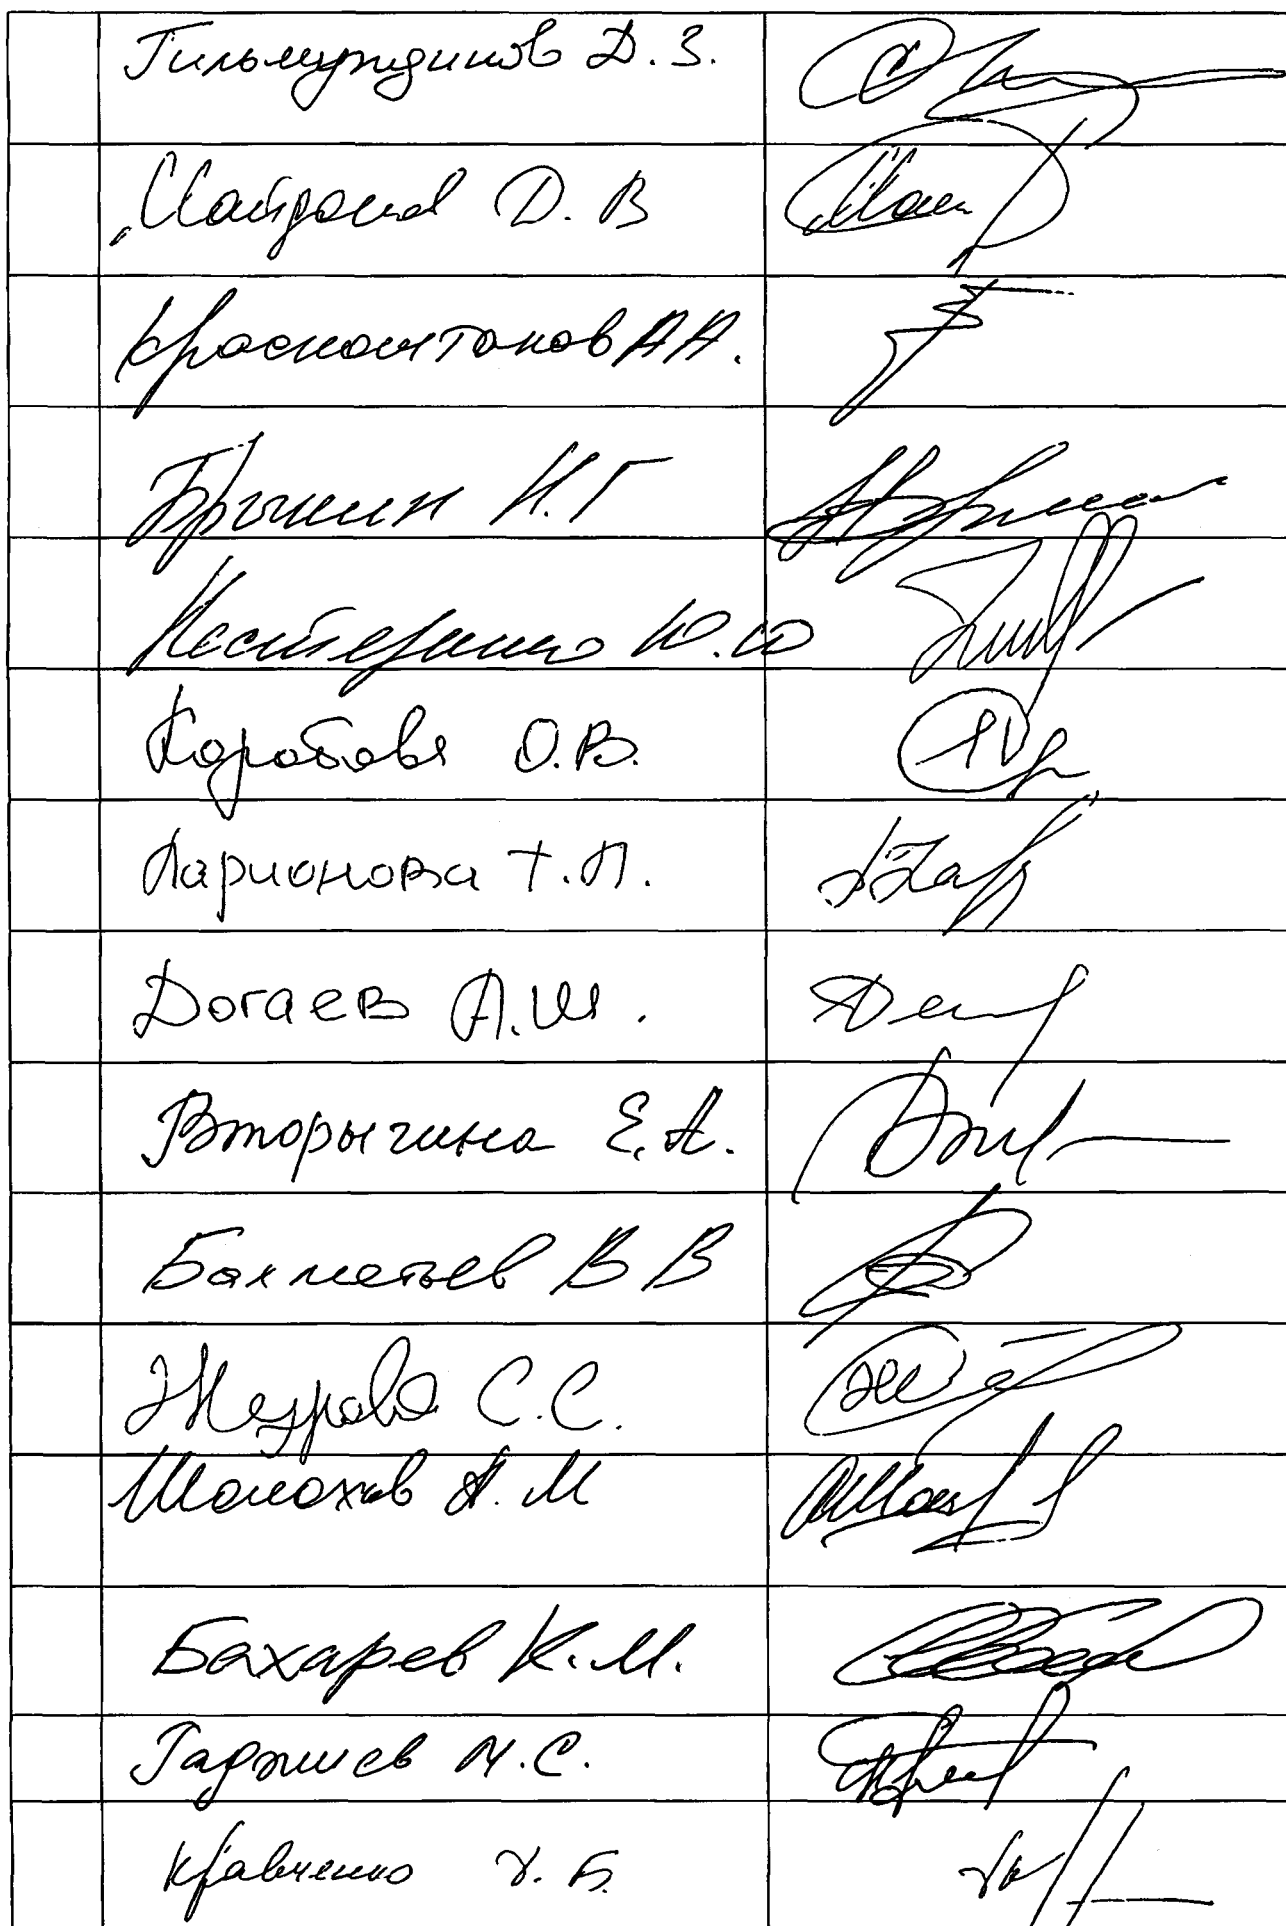 Гильмутдинов Д.З.
Майданов Д.В
Красноштанов А.А.
Брыкин Н.Г
Нестеренко Ю.Ю
Коробова О.В.
Ларионова Т.П.
Догаев А.Ш.
Вторыгина Е.А.
Бахметьев В В
Журова С.С.
Шолохов А.М
Бахарев К.М.
Гаджиев М.С.
Кравченко Д.Б.